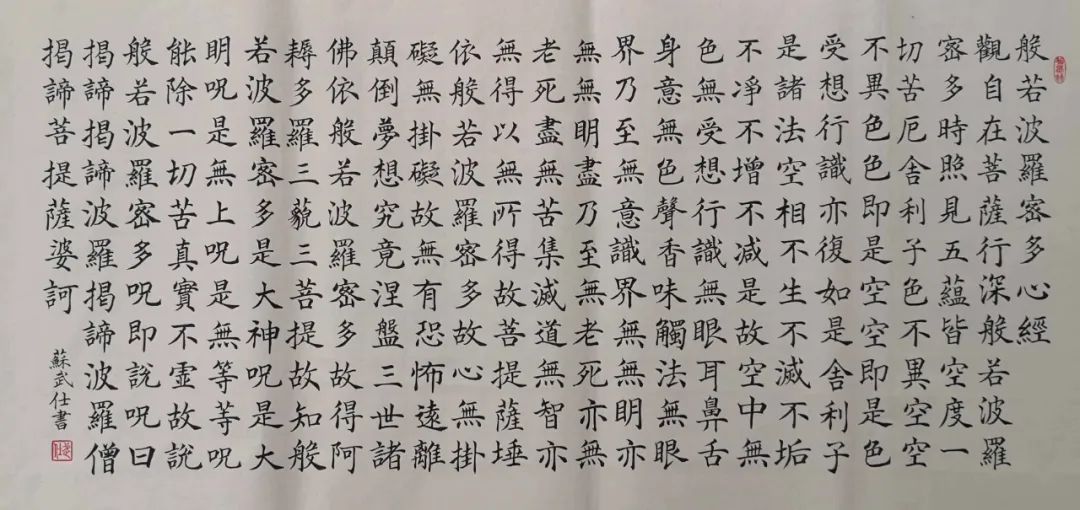 般若波羅密多心經
觀自在菩薩行深般若波羅
密多時照見五蘊皆空度一
切苦厄舍利子色不異空空
不異色色即是空空即是色
受想行識亦復如是舍利子
是諸法空相不生不滅不垢
不凈不增不减是故空中無
色無受想行識無眼耳鼻舌
身意無色聲香味觸法無眼
界乃至無意識界無無明亦
無無明盡乃至無老死亦無
老死盡無苦集滅道無智亦
無得以無所得故菩提薩埵
依般若波羅密多故心無掛
礙無掛礙故無有恐怖遠離
顛倒夢想究竟涅盤三世諸
佛依般若波羅密多故得阿
耨多羅三藐三菩提故知般
若波羅密多是大神呪是大
明呪是無上呪是無等等呪
能除一切苦真實不靈故說
般若波羅密多呪即說呪曰
揭諦揭諦波羅揭諦波羅僧
揭諦菩提薩婆訶
蘇武仕書